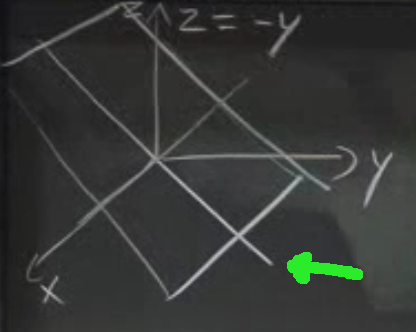 z z = -y
y
x